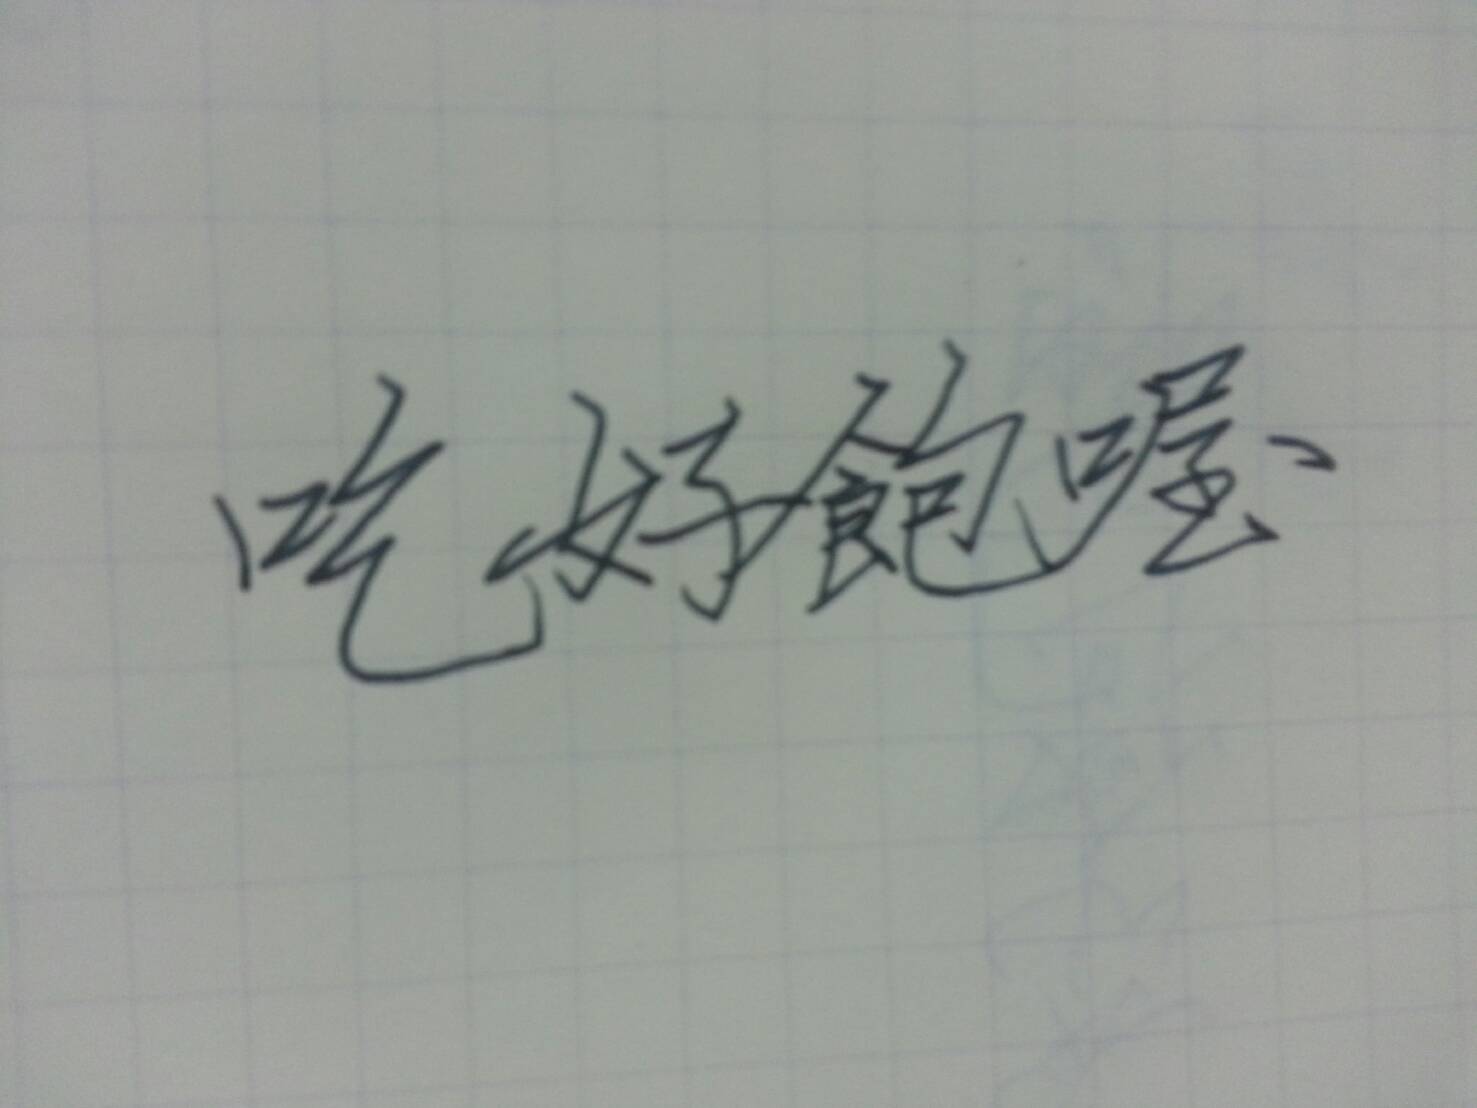 吃好飽喔、